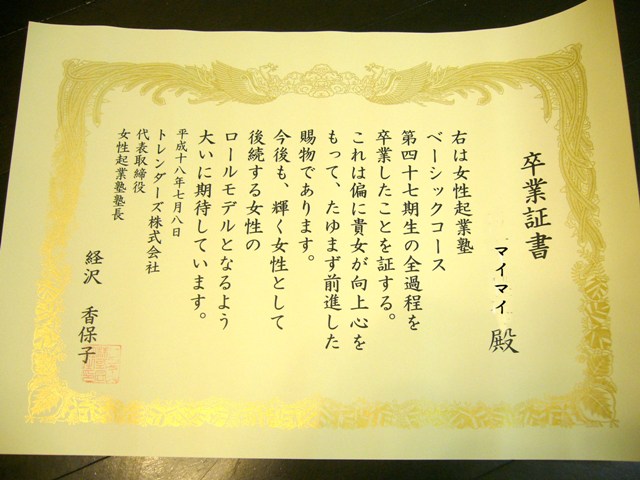 卒業証書
マイマイ 殿
右は女性起業塾
ベーシックコース
第四十七期生の全過程を
卒業したことを証する。
これは偏に貴女が向上心を
もって、たゆまず前進した
賜物であります。
今後も、輝く女性として
後続する女性の
ロールモデルとなるよう
大いに期待しています。
平成十八年七月八日
トレンダーズ株式会社
代表取締役
女性起業塾塾長
経沢 香保子